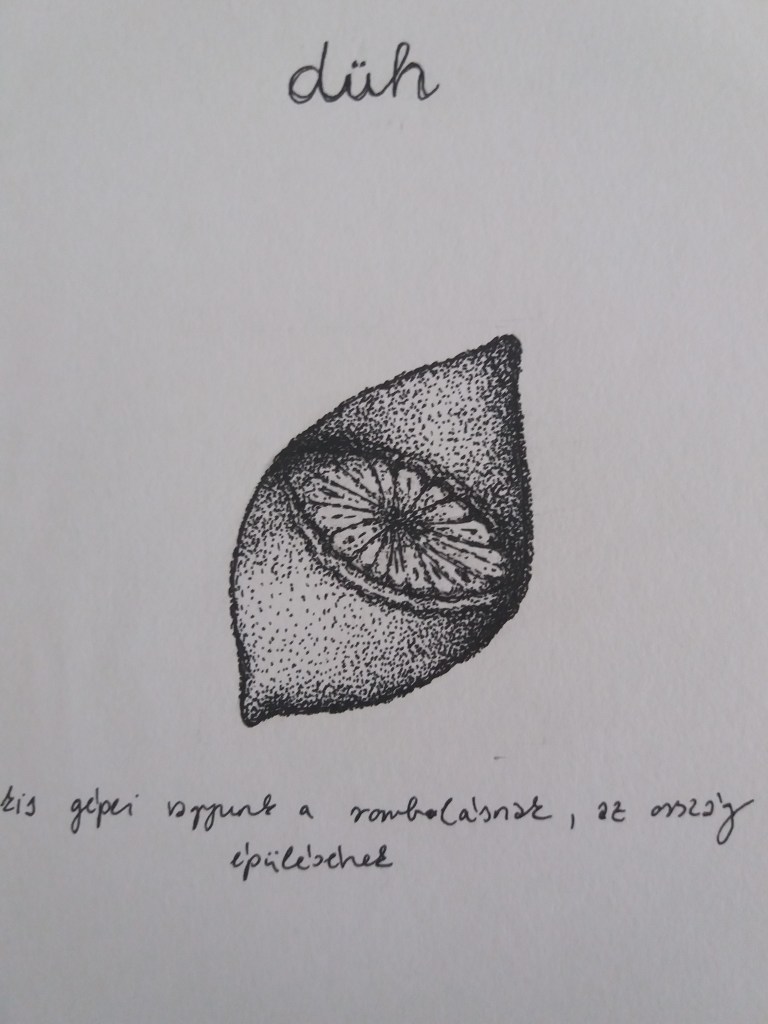 düh
kis gépei vagyunk a rombolásnak, az ország
épülésének